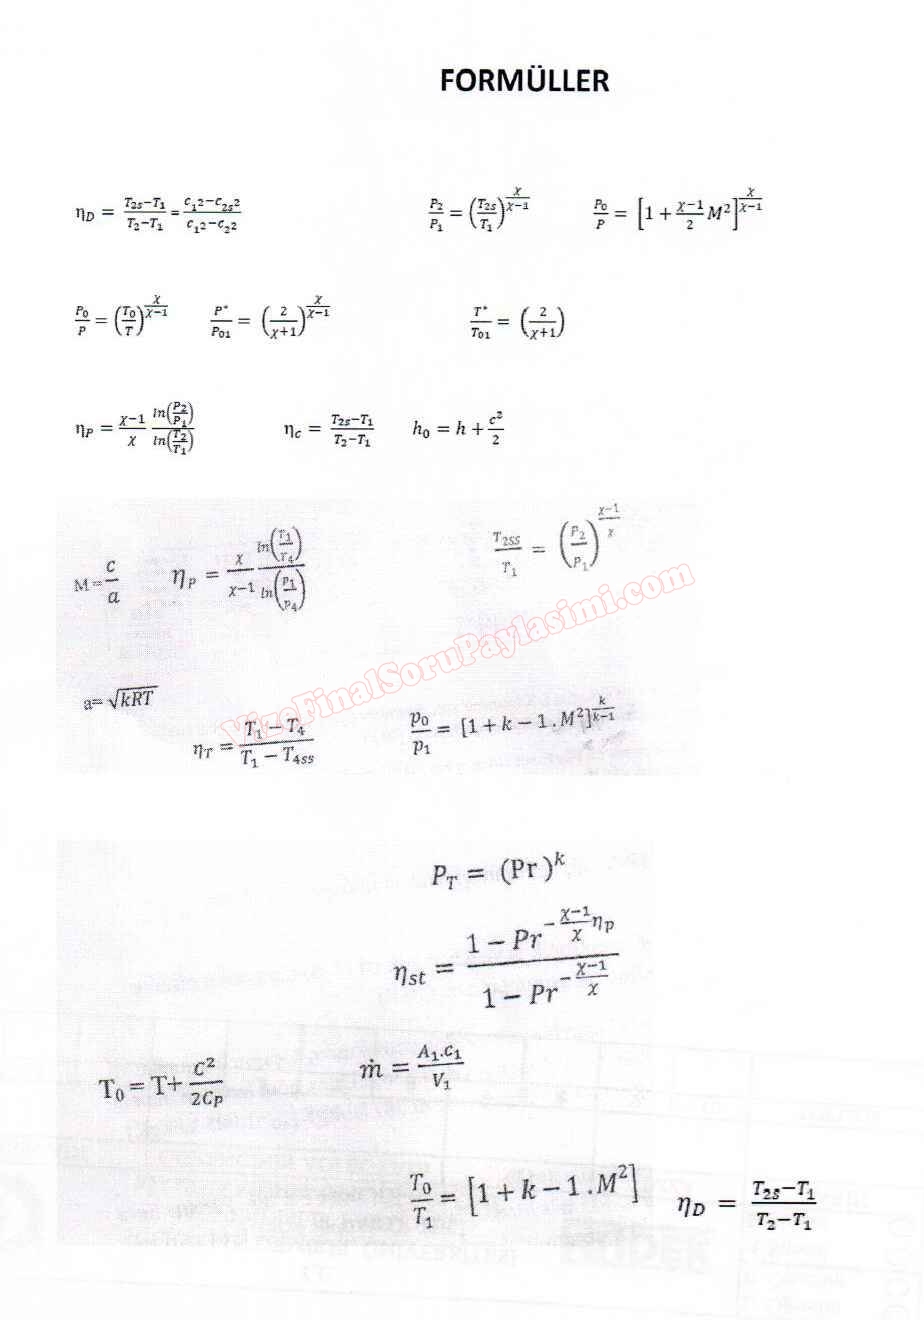 FORMÜLLER
η_D = (T_2s−T_1)/(T_2−T_1) = (c_1²−c_2s²)/(c_1²−c_2²)    P_2/P_1 = (T_2s/T_1)^(χ/(χ−1))    P_0/P = [1 + (χ−1)/2 M²]^(χ/(χ−1))
P_0/P = (T_0/T)^(χ/(χ−1))    P*/P_01 = (2/(χ+1))^(χ/(χ−1))    T*/T_01 = (2/(χ+1))
η_P = (χ−1)/χ ln(P_2/P_1)/ln(T_2/T_1)    η_c = (T_2s−T_1)/(T_2−T_1)    h_0 = h + c²/2
M = c/a    η_P = χ/(χ−1) ln(T_1/T_4)/ln(p_1/p_4)    T_2ss/T_1 = (P_2/P_1)^((χ−1)/χ)
VizeFinalSoruPaylasimi.com
a= √kRT    η_T = (T_1 − T_4)/(T_1 − T_4ss)    p_0/p_1 = [1 + k − 1 . M²]^(k/(k−1))
P_T = (Pr )^k
η_st = (1 − Pr^(−(χ−1)/χ η_p))/(1 − Pr^(−(χ−1)/χ))
T_0 = T+ C²/(2C_P)    ṁ = (A_1.C_1)/V_1
T_0/T_1 = [1 + k − 1 . M²]    η_D = (T_2s−T_1)/(T_2−T_1)